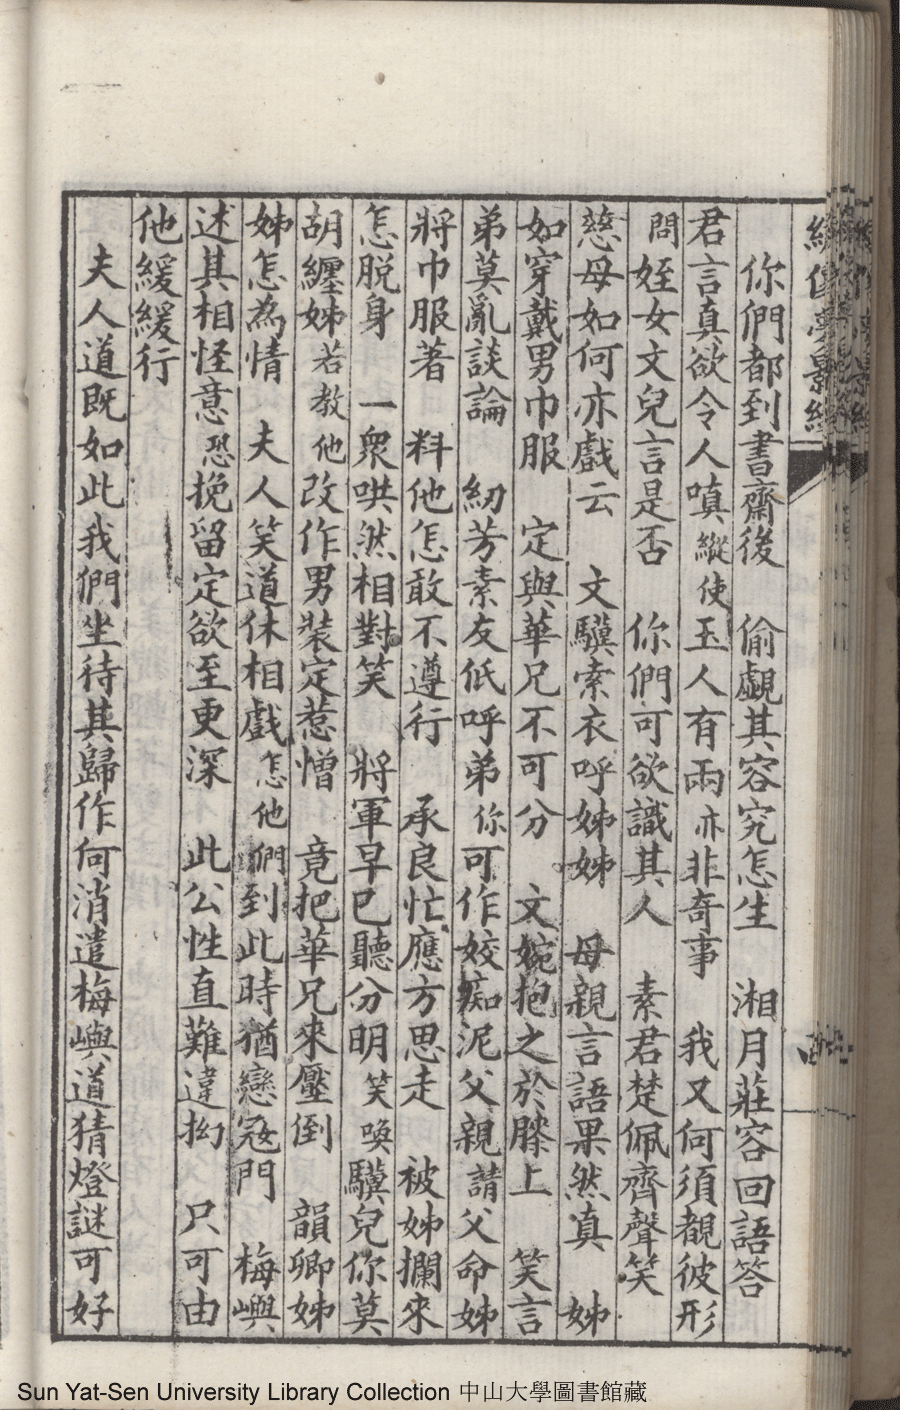 你們都到書齋後　偷覷其容究怎生　湘月莊容回語答
君言真欲令人嗔縱使玉人有兩亦非奇事　我又何須覩彼形
問姪女文兒言是否　你們可欲識其人　素君楚佩齊聲笑
慈母如何亦戲云　文驥索衣呼姊姊　母親言語果然真　姊
如穿戴男巾服　定與華兄不可分　文婉抱之於膝上　笑言
弟莫亂談論　紉芳素友低呼弟你可作姣痴泥父親請父命姊
將巾服著　料他怎敢不遵行　承良忙應方思走　被姊攔來
怎脫身　一衆哄然相對笑　將軍早已聽分明　笑喚驥兒你莫
胡纏姊若教他改作男裝定惹憎　竟把華兄來壓倒　韻卿姊
姊怎為情　夫人笑道休相戲怎他們到此時猶戀寇門　梅嶼
述其相怪意恐挽留定欲至更深　此公性直難違拗　只可由
他緩緩行
夫人道既如此我們坐待其歸作何消遣梅嶼道猜燈謎可好
Sun Yat-Sen University Library Collection 中山大學圖書館藏